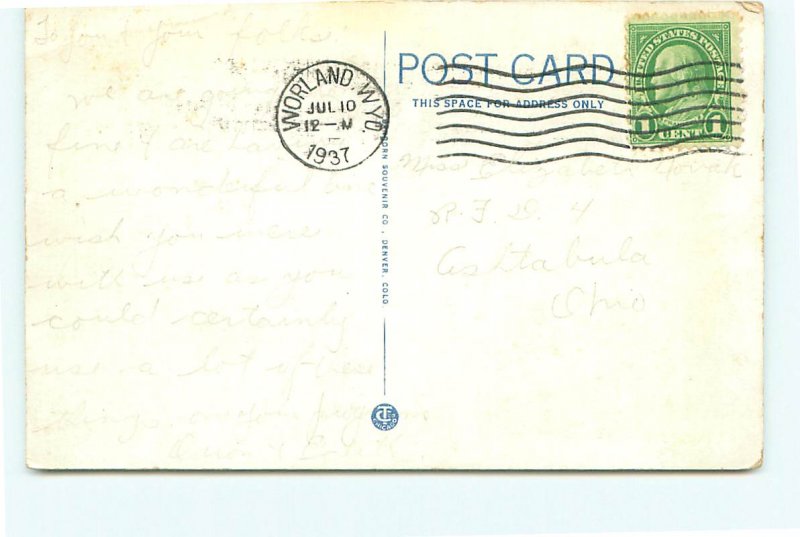 To you & your folks
we are
fine & are
a wonderful time
wish you were
with us as you
could certainly
use a lot of these
things on
WORLAND, WYO.
JUL 10
12 — M
1937
POST CARD
THIS SPACE FOR ADDRESS ONLY
UNITED STATES POSTAGE
1 CENT 1
Miss Elizabeth Novak
R. F. D. 4
Ashtabula
Ohio
BORN SOUVENIR CO., DENVER, COLO.
CHICAGO